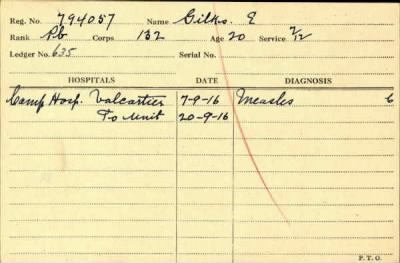 Reg. No. 794057 Name Gilks. E
Rank Pb Corps 132 Age 20 Service 2/12
Ledger No. 635 Serial No.
HOSPITALS DATE DIAGNOSIS
Camp Hosp. Valcartier 7-9-16 Measles C
To Unit 20-9-16
P. T. O.